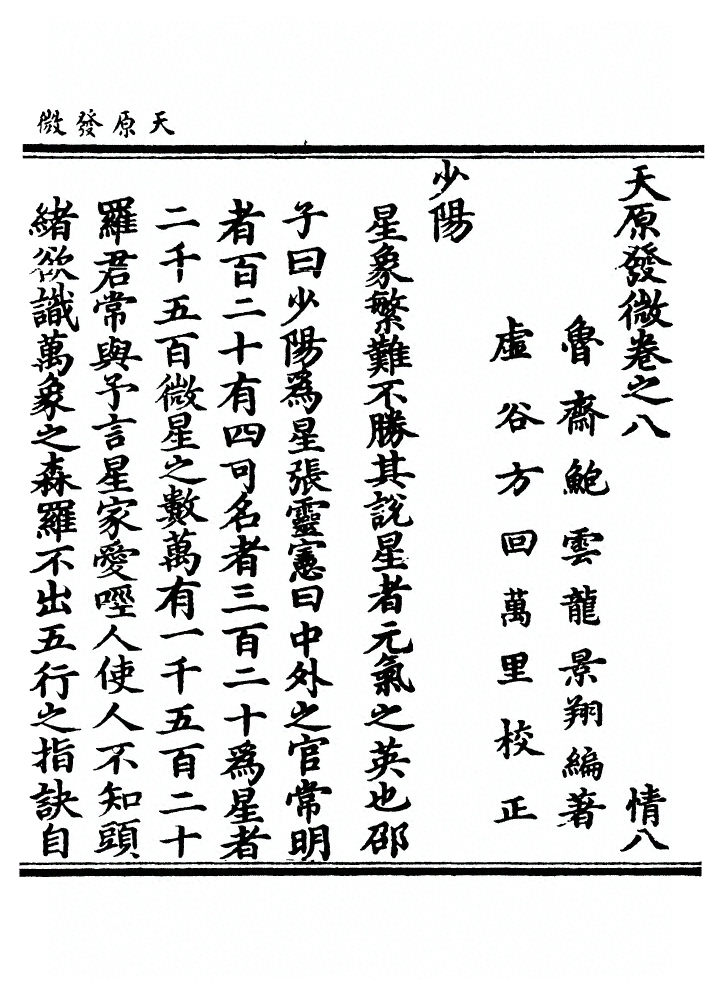 天原發微
天原發微卷之八 情八
魯齋鮑雲龍景翔編著
虛谷方回萬里校正
少陽
星象繁難不勝其說星者元氣之英也邵
子曰少陽為星張靈憲曰中外之官常明
者百二十有四可名者三百二十為星者
二千五百微星之數萬有一千五百二十
羅君常與予言星家愛啞人使人不知頭
緒欲識萬象之森羅不出五行之指訣自